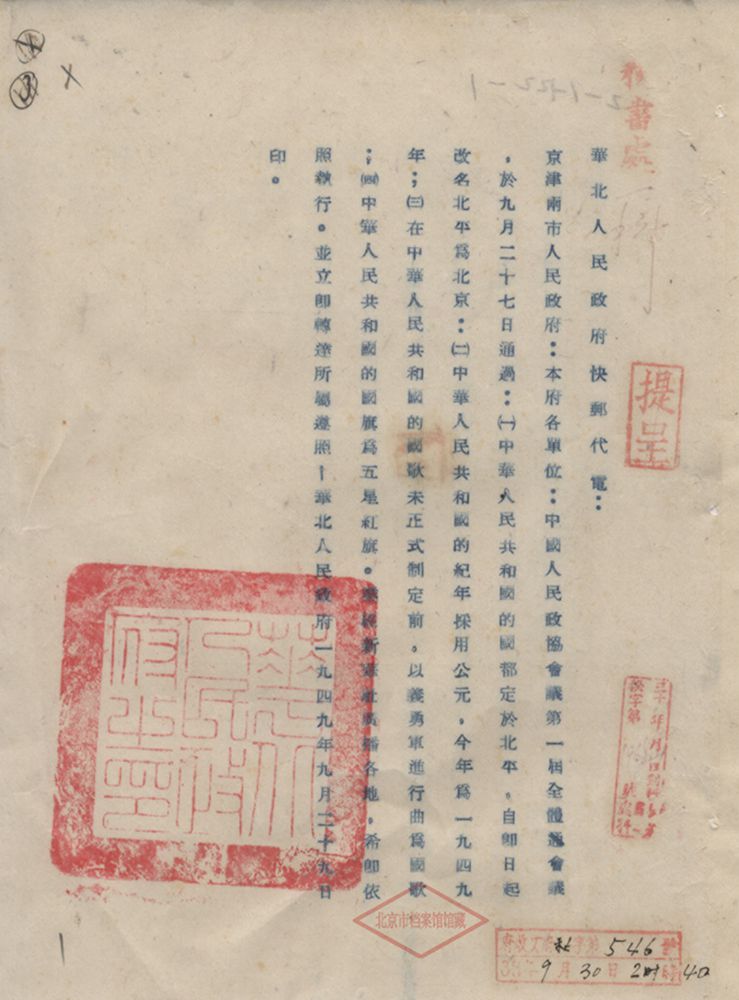 華北人民政府快郵代電：
京津兩市人民政府：本府各單位：中國人民政協會議第一屆全體通會議
，於九月二十七日通過：㈠中華人民共和國的國都定於北平。自即日起
改名北平爲北京：㈡中華人民共和國的紀年採用公元，今年爲一九四九
年；㈢在中華人民共和國的國歌未正式制定前。以義勇軍進行曲爲國歌
；㈣中華人民共和國的國旗爲五星紅旗。業經新華社廣播各地，希即依
照執行。並立即轉達所屬遵照！華北人民政府一九四九年九月二十九日
印。
秘書處
提呈
華北人民政府之印
北京市档案馆馆藏
秘字第546號
9月30日2时40